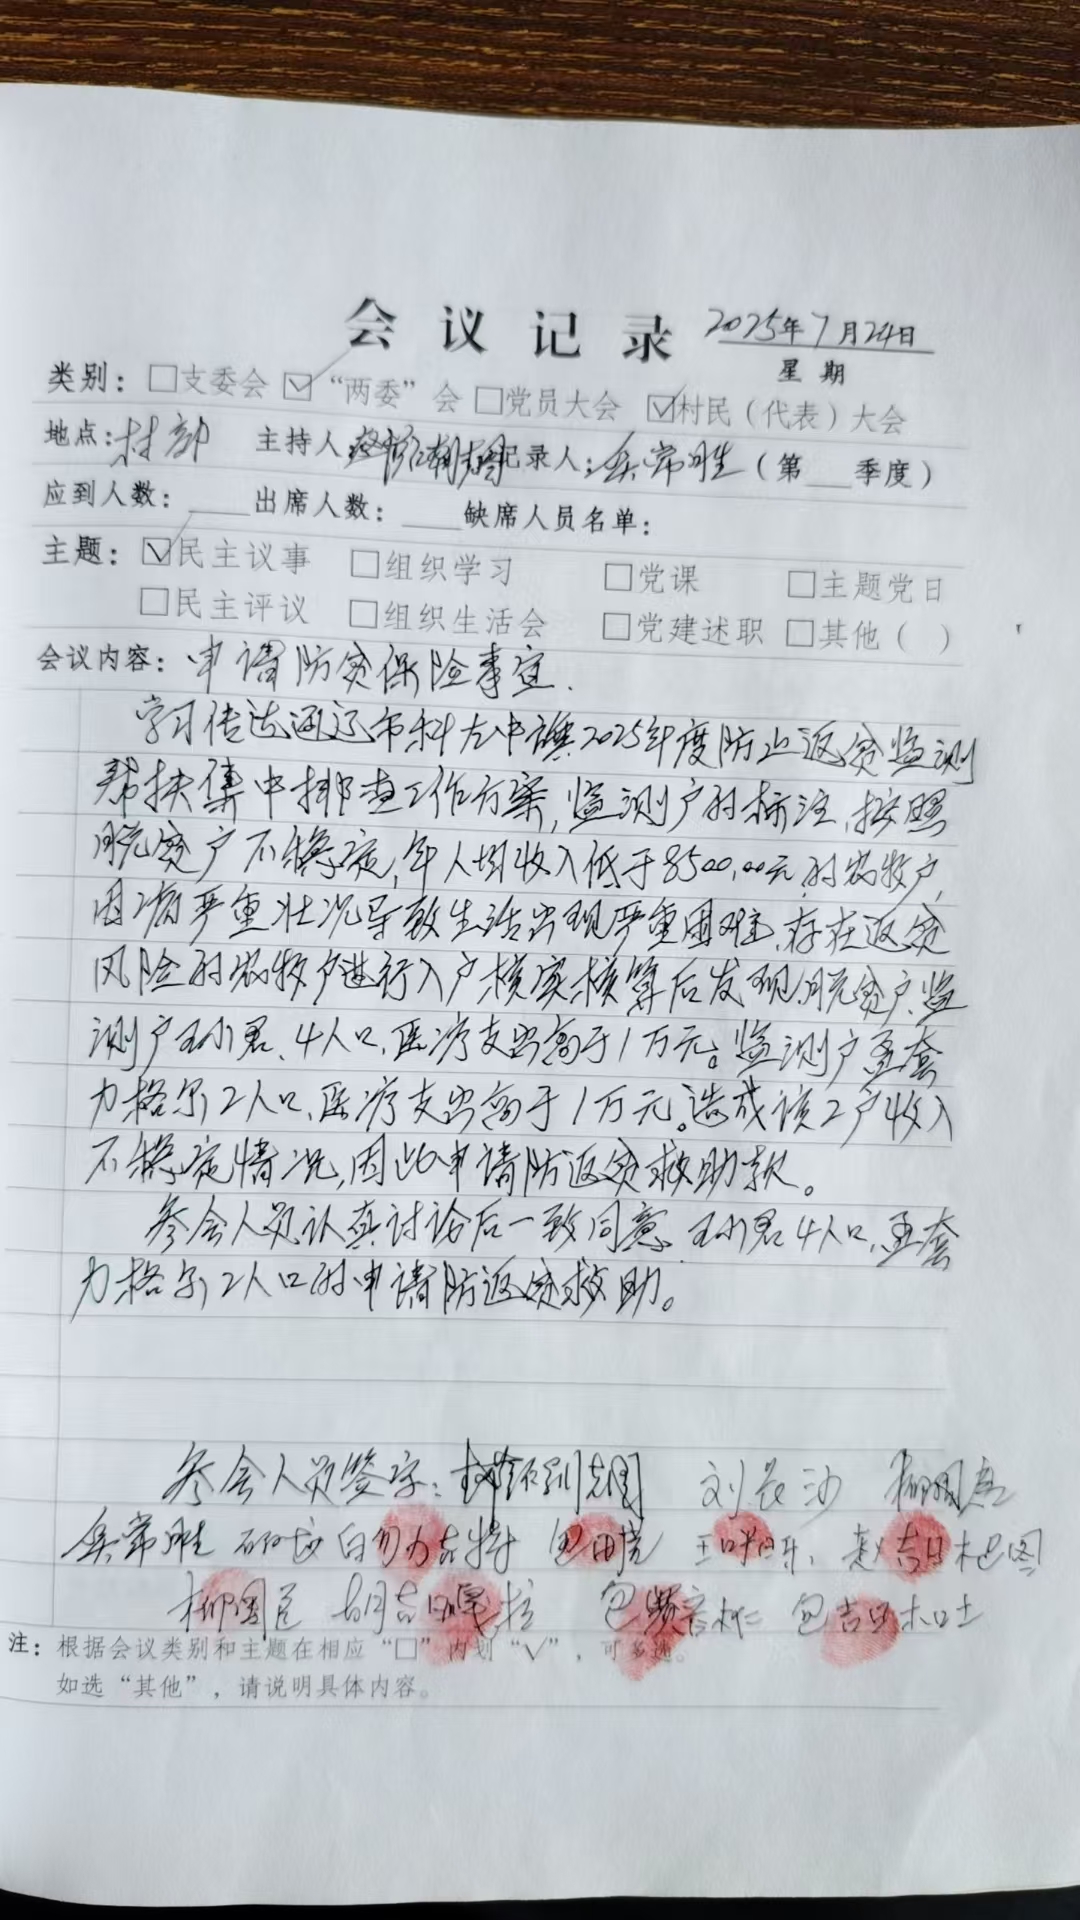 会议记录 2025年7月24日
星期
类别：□支委会 ☑“两委”会 □党员大会 ☑村民（代表）大会
地点：村部 主持人 记录人：吴常胜（第 季度）
应到人数： 出席人数： 缺席人员名单：
主题：☑民主议事 □组织学习 □党课 □主题党日
□民主评议 □组织生活会 □党建述职 □其他（ ）
会议内容：申请防贫保险事宜.
学习传达通辽市科左中旗2025年度防止返贫监测
帮扶集中排查工作方案，监测户的标注，按照
脱贫户不稳定，年人均收入低于8500.00元的农牧户，
因病严重状况导致生活出现严重困难，存在返贫
风险的农牧户进行入户核实核算后发现，脱贫户、监
测户王小君、4人口，医疗支出高于1万元。监测户孟套
力格尔2人口、医疗支出高于1万元。造成该2户收入
不稳定情况，因此申请防返贫救助款。
参会人员认真讨论后一致同意，王小君4人口，孟套
力格尔2人口的申请防返贫救助。
参会人员签字： 刘长沙
吴常胜 白 力吉特 包 王 赵吉日木巴图
柳国臣 胡吉日嘎拉 包 包吉日木日土
注：根据会议类别和主题在相应“□”内划“√”，可多选。
如选“其他”，请说明具体内容。